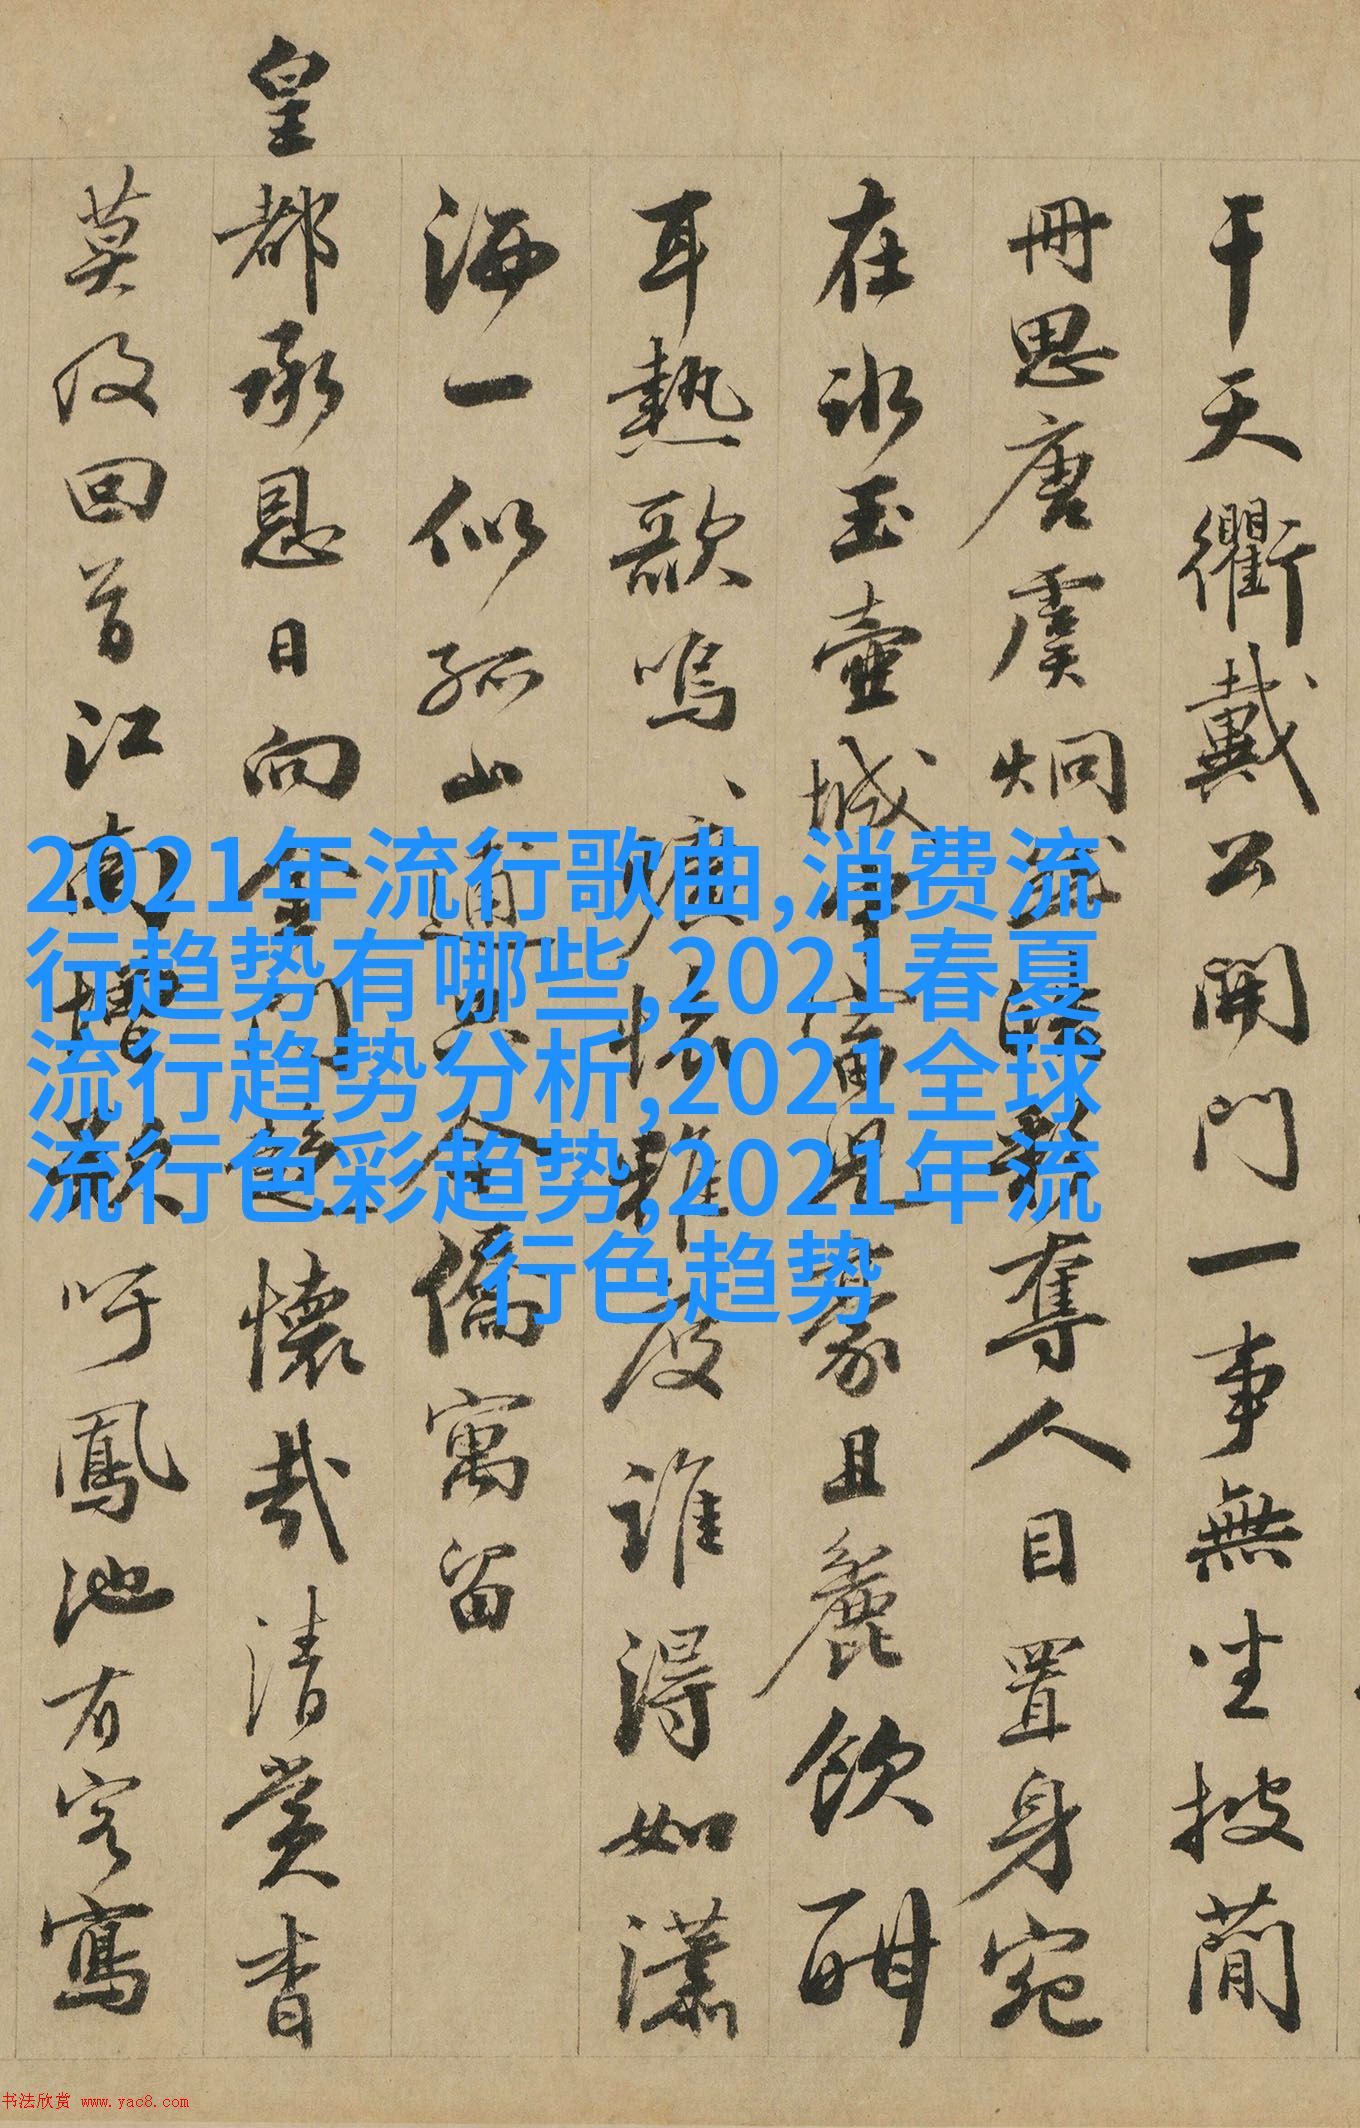 干天衢戴公開門一事無坐披簡
冊思唐虞炯奪人目置身宛
在冰玉壺城中富豪且麗飲酣
耳熱歌嗚、曠懷難度誰得如瀟
海一似孤山通今僑寓留
皇都承恩日向金懷哉清賞音
莫及回首江南增歎吁鳳池有客寫
2021年流行歌曲,消费流
行趋势有哪些,2021春夏
流行趋势分析,2021全球
流行色彩趋势,2021年流
行色趋势
书法欣赏 www.yac8.com